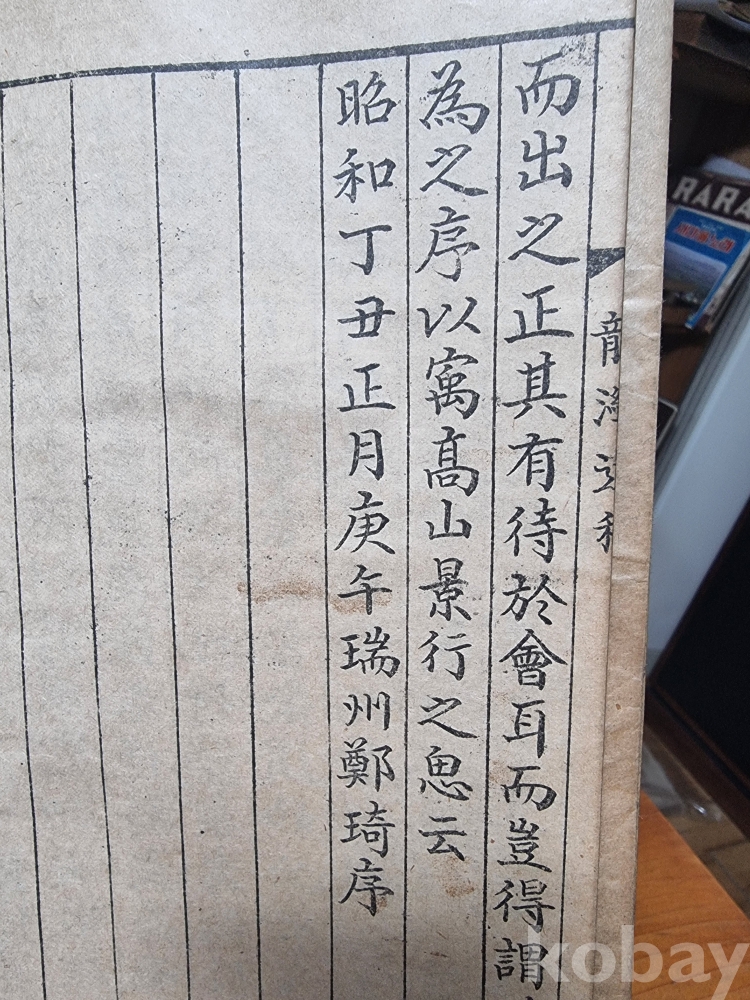 而出之正其有待於會耳而豈得謂
為之序以寓高山景行之思云
昭和丁丑正月庚午瑞州鄭琦序
RARA
kobay